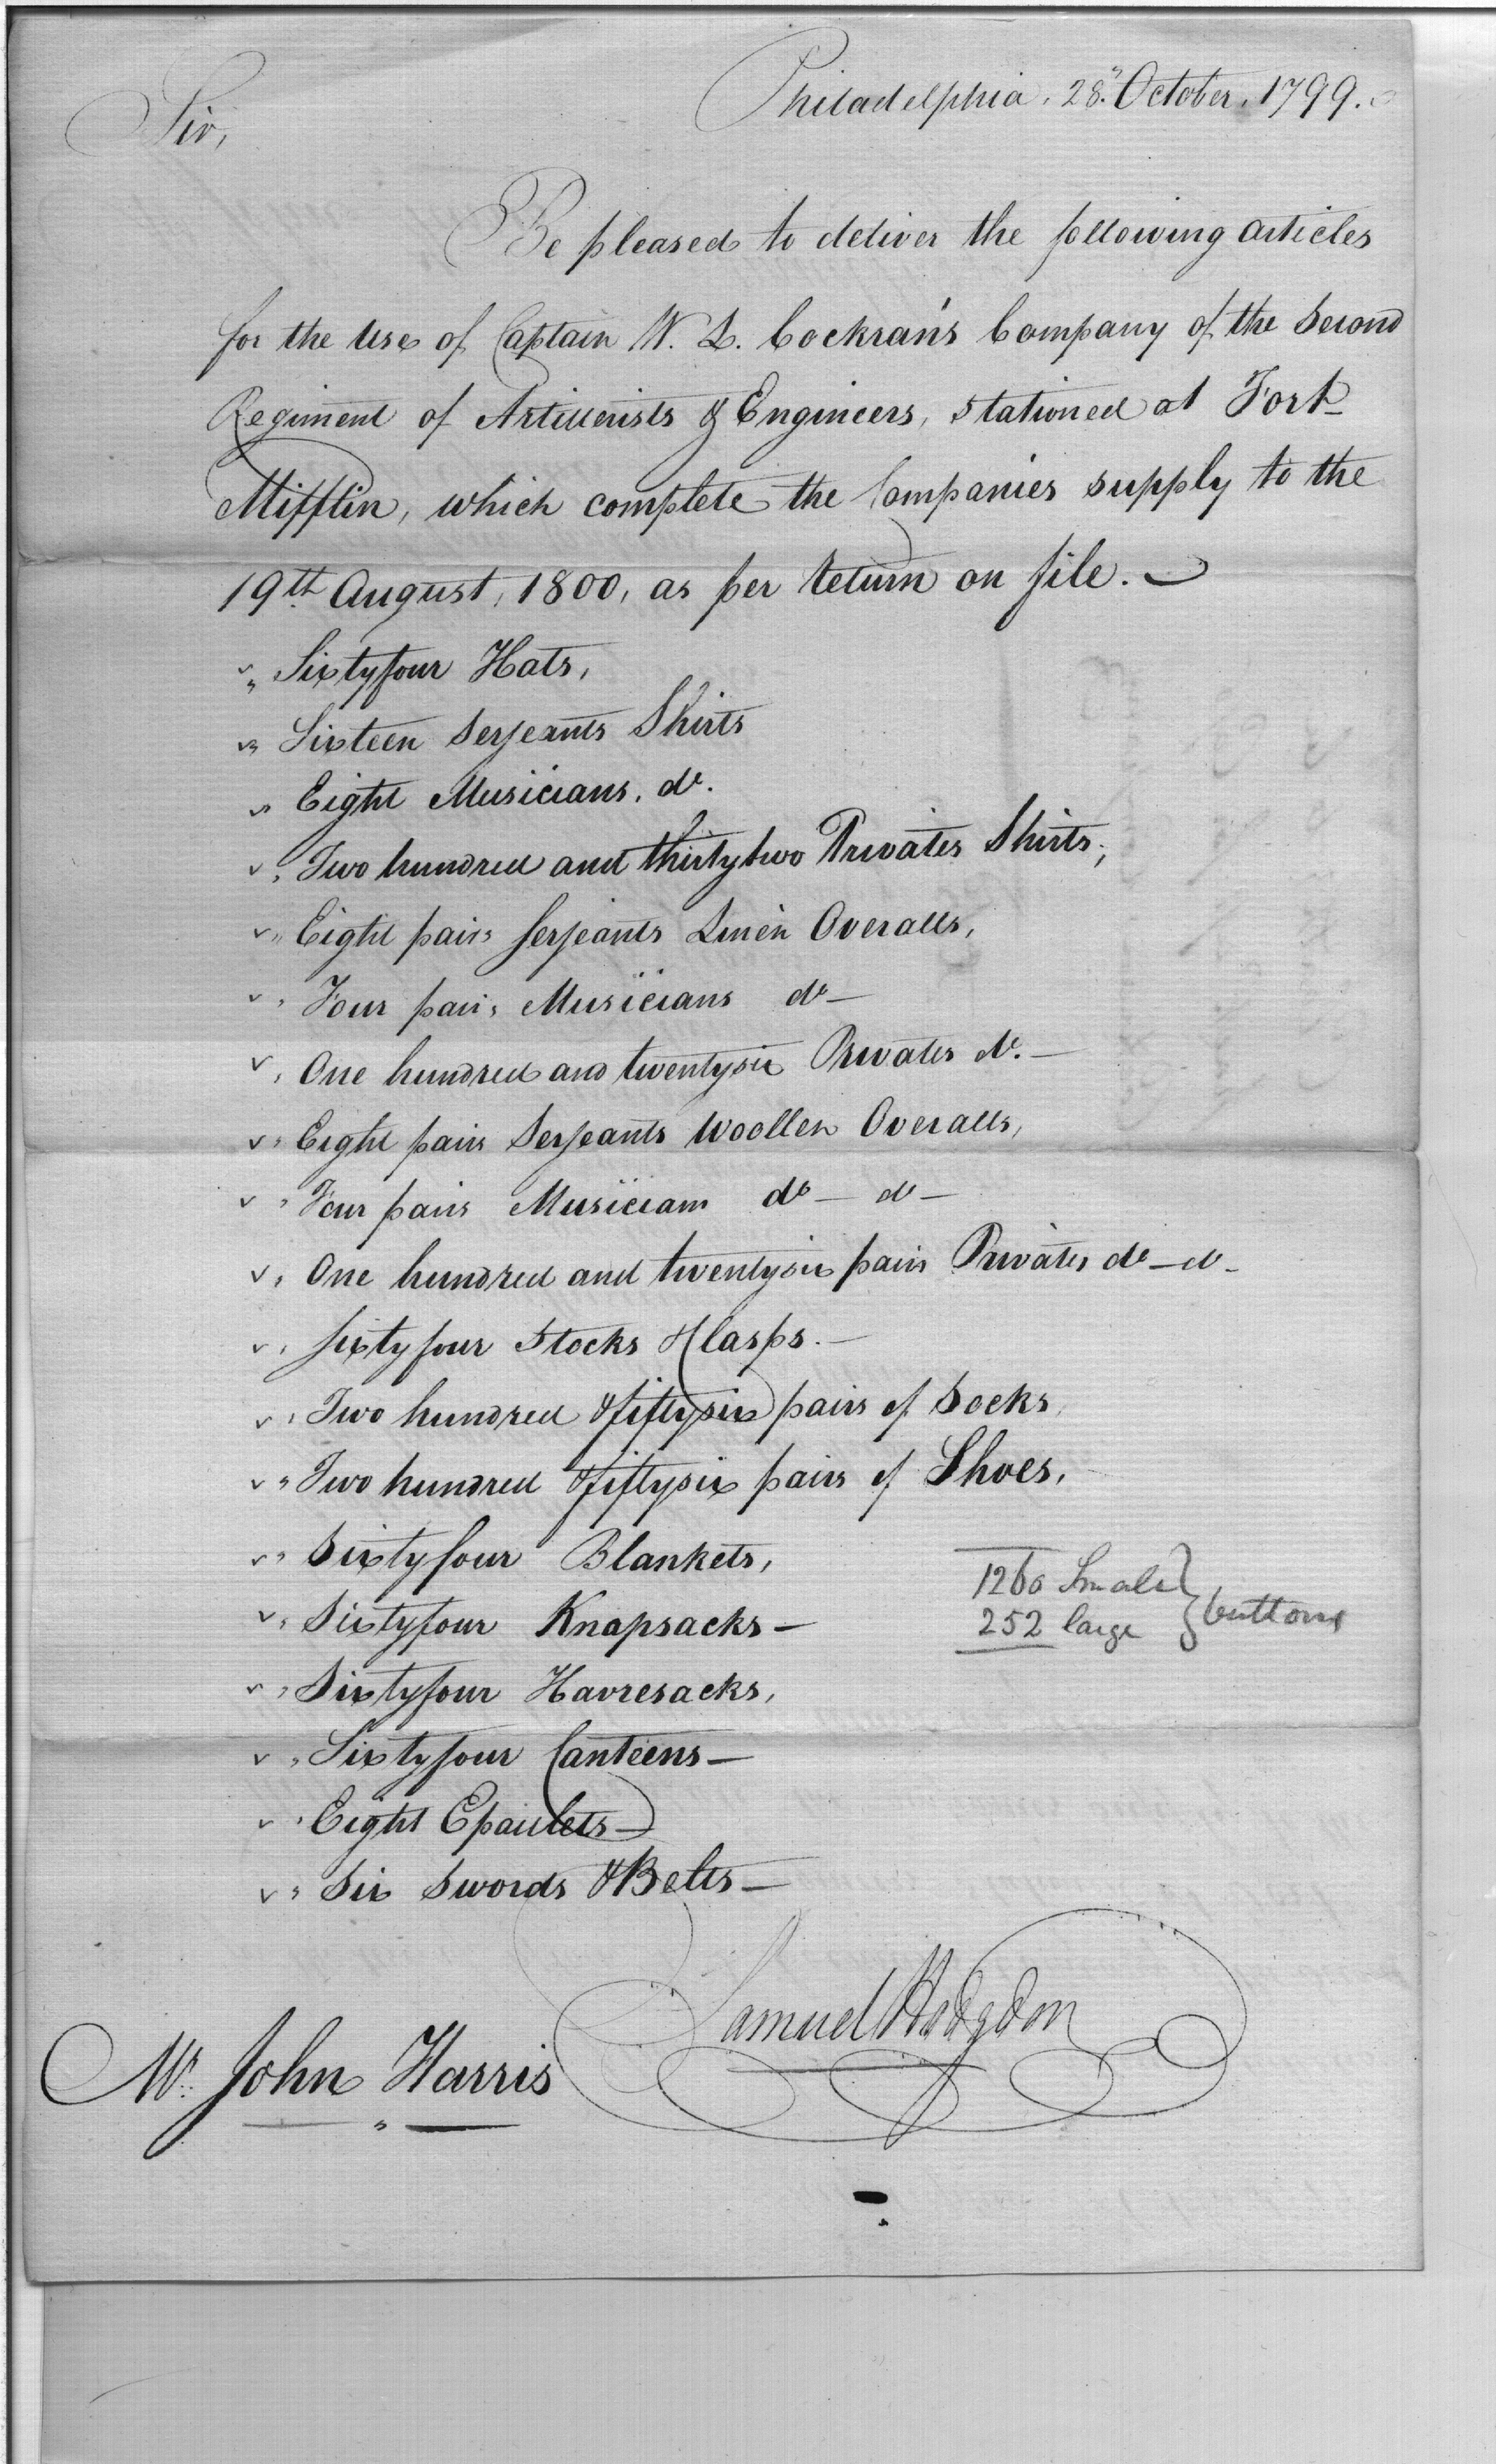 Philadelphia, 28" October, 1799.
Sir,
Be pleased to deliver the following articles
for the Use of Captain W. L. Cockran's Company of the Second
Regiment of Artillerists & Engineers, stationed at Fort
Mifflin, which complete the Companies supply to the
19th August, 1800, as per return on file.—
v „ Sixtyfour Hats,
v „ Sixteen Serjeants Shirts
v „ Eight Musicians, do.
v „ Two hundred and thirtytwo Privates Shirts,
v „ Eight pairs Serjeants Linen Overalls,
v „ Four pairs Musicians do —
v „ One hundred and twentysix Privates do. —
v „ Eight pairs Serjeants Woollen Overalls,
v „ Four pairs Musicians do — do —
v „ One hundred and twentysix pairs Privates do — do —
v „ Sixtyfour Stocks & Clasps. —
v „ Two hundred & fiftysix pairs of Socks,
v „ Two hundred & fiftysix pairs of Shoes,
v „ Sixtyfour Blankets,
v „ Sixtyfour Knapsacks —
v „ Sixtyfour Havresacks,
v „ Sixtyfour Canteens —
v „ Eight Epaulets —
v „ Six Swords & Belts —
1260 Small } buttons
252 large
Samuel Hodgdon
Mr. John Harris